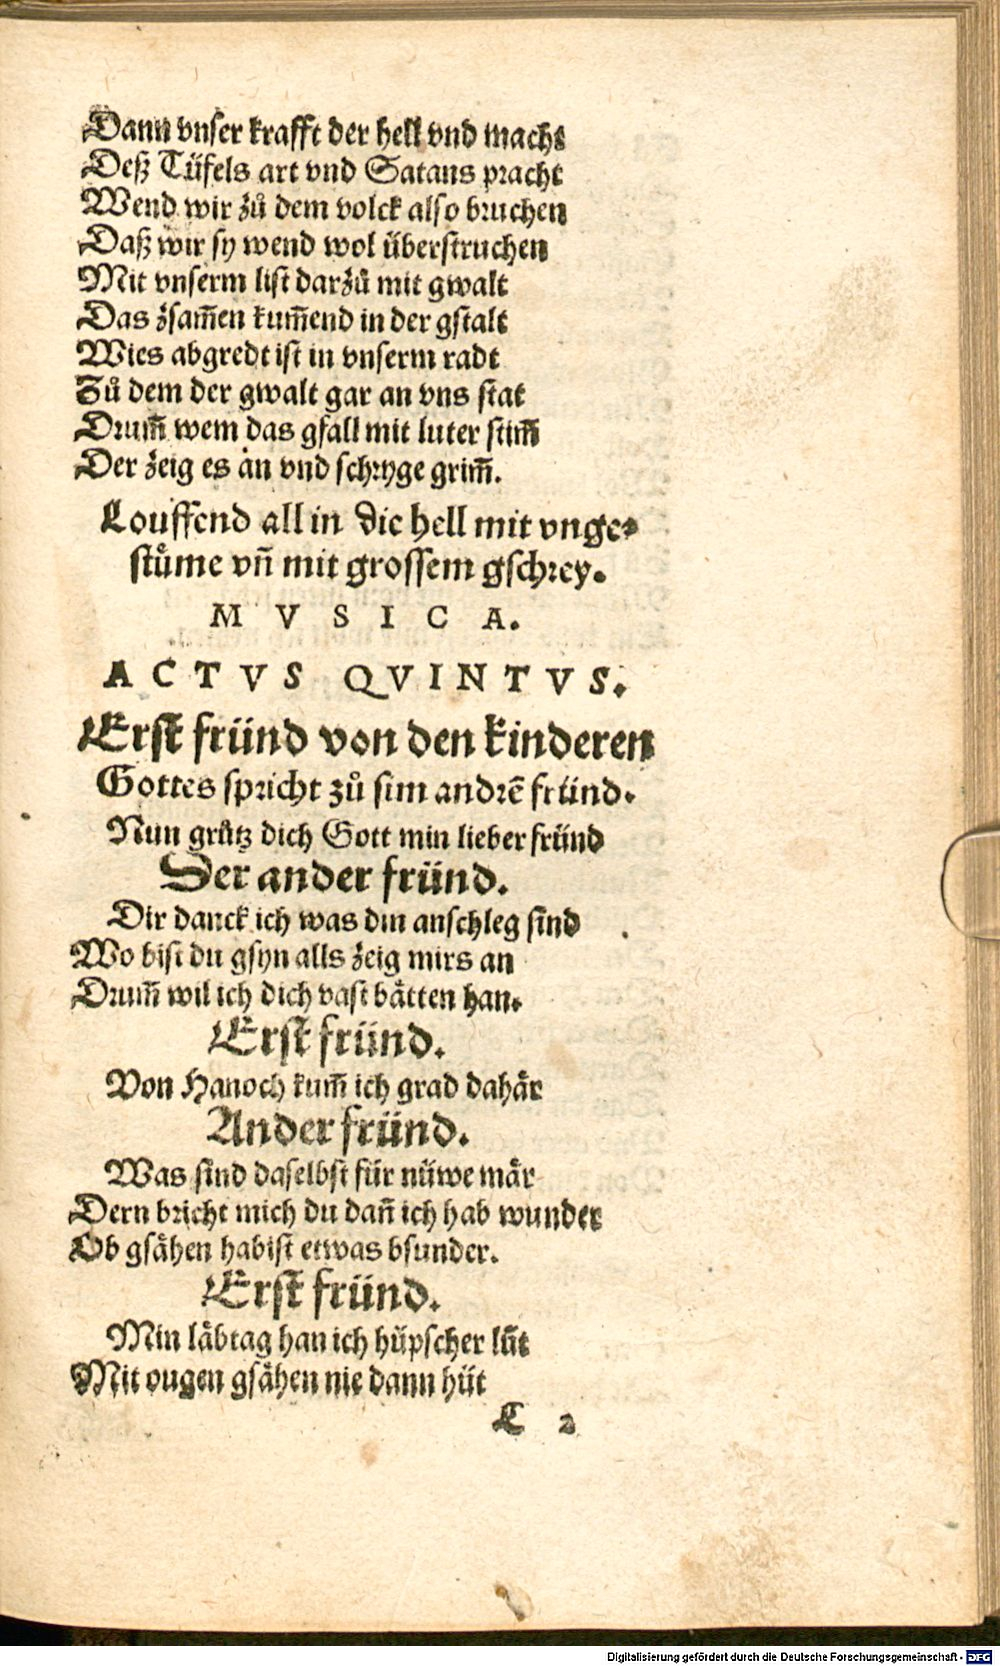 Dann vnser krafft der hell vnd macht
Deß Tüfels art vnd Satans pracht
Wend wir zů dem volck also bruchen
Daß wir sy wend wol überstruchen
Mit vnserm list darzů mit gwalt
Das zsam̄en kum̄end in der gstalt
Wies abgredt ist in vnserm radt
Zů dem der gwalt gar an vns stat
Drum̄ wem das gfall mit luter stim̄
Der zeig es an vnd schryge grim̄.
Louffend all in die hell mit vnge⸗
stůme vn̄ mit grossem gschrey.
MVSICA.
ACTVS QVINTVS.
Erst fründ von den kinderen
Gottes spricht zů sim andrē fründ.
Nun grůtz dich Gott min lieber fründ
Der ander fründ.
Dir danck ich was din anschleg sind
Wo bist du gsyn alls zeig mirs an
Drum̄ wil ich dich vast bätten han.
Erst fründ.
Von Hanoch kum̄ ich grad dahär
Ander fründ.
Was sind daselbst für nüwe mär
Dern bricht mich du dan̄ ich hab wunder
Ob gsähen habist etwas bsunder.
Erst fründ.
Min läbtag han ich hüpscher lüt
Mit ougen gsähen nie dann hüt
L 2
Digitalisierung gefördert durch die Deutsche Forschungsgemeinschaft - DFG